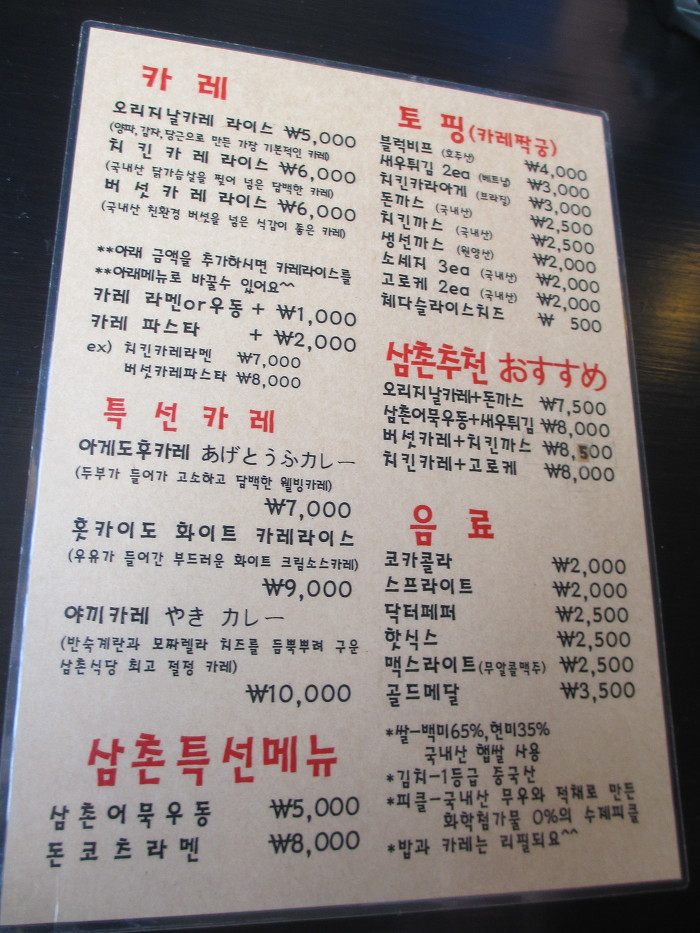 카 레
오리지날카레 라이스 ₩5,000
(양파,감자,당근으로 만든 가장 기본적인 카레)
치 킨 카 레 라이스 ₩6,000
(국내산 닭가슴살을 찢어 넣은 담백한 카레)
버 섯 카 레 라이스 ₩6,000
(국내산 친환경 버섯을 넣은 식감이 좋은 카레)
**아래 금액을 추가하시면 카레라이스를
**아래메뉴로 바꿀수 있어요^^
카레 라멘or우동 + ₩1,000
카레 파스타 + ₩2,000
ex) 치킨카레라멘 ₩7,000
버섯카레파스타 ₩8,000
특 선 카 레
아게도후카레 あげとうふカレー
(두부가 들어가 고소하고 담백한 웰빙카레)
₩7,000
홋카이도 화이트 카레라이스
(우유가 들어간 부드러운 화이트 크림소스카레)
₩9,000
야끼카레 やき カレー
(반숙계란과 모짜렐라 치즈를 듬뿍뿌려 구운
삼촌식당 최고 절정 카레)
₩10,000
삼촌특선메뉴
삼촌어묵우동 ₩5,000
돈코츠라멘 ₩8,000
토 핑(카레짝궁)
블럭비프 (호주산) ₩4,000
새우튀김 2ea (베트남) ₩3,000
치킨카라아게 (브라질) ₩3,000
돈까스 (국내산) ₩2,500
치킨까스 (국내산) ₩2,500
생선까스 (원양산) ₩2,000
소세지 3ea (국내산) ₩2,000
고로케 2ea (국내산) ₩2,000
체다슬라이스치즈 ₩ 500
삼촌추천 おすすめ
오리지날카레+돈까스 ₩7,500
삼촌어묵우동+새우튀김 ₩8,000
버섯카레+치킨까스 ₩8,500
치킨카레+고로케 ₩8,000
음 료
코카콜라 ₩2,000
스프라이트 ₩2,000
닥터페퍼 ₩2,500
핫식스 ₩2,500
맥스라이트(무알콜맥주) ₩2,500
골드메달 ₩3,500
*쌀-백미65%,현미35%
국내산 햅쌀 사용
*김치-1등급 중국산
*피클-국내산 무우와 적채로 만든
화학첨가물 0%의 수제피클
*밥과 카레는 리필되요^^